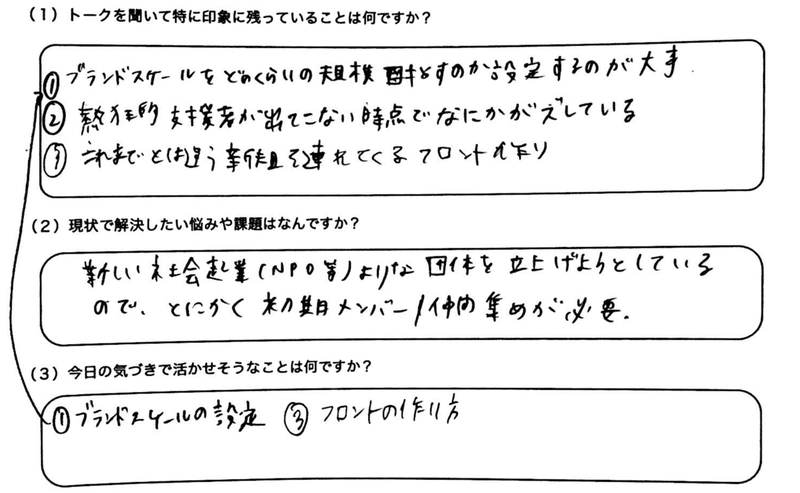 (1)トークを聞いて特に印象に残っていることは何ですか?
①ブランドスケールをどのくらいの規模 とすのか設定するのが大事
②熱狂的支援者が出てこない時点でなにかがズレている
③これまでとは違う 連れてくるフロント作り
(2)現状で解決したい悩みや課題はなんですか?
新しい社会起業(NPO等)ような団体を立上げようとしている
ので、とにかく初期メンバー/仲間集めが必要.
(3)今日の気づきで活かせそうなことは何ですか?
①ブランドスケールの設定 ③フロントの作り方